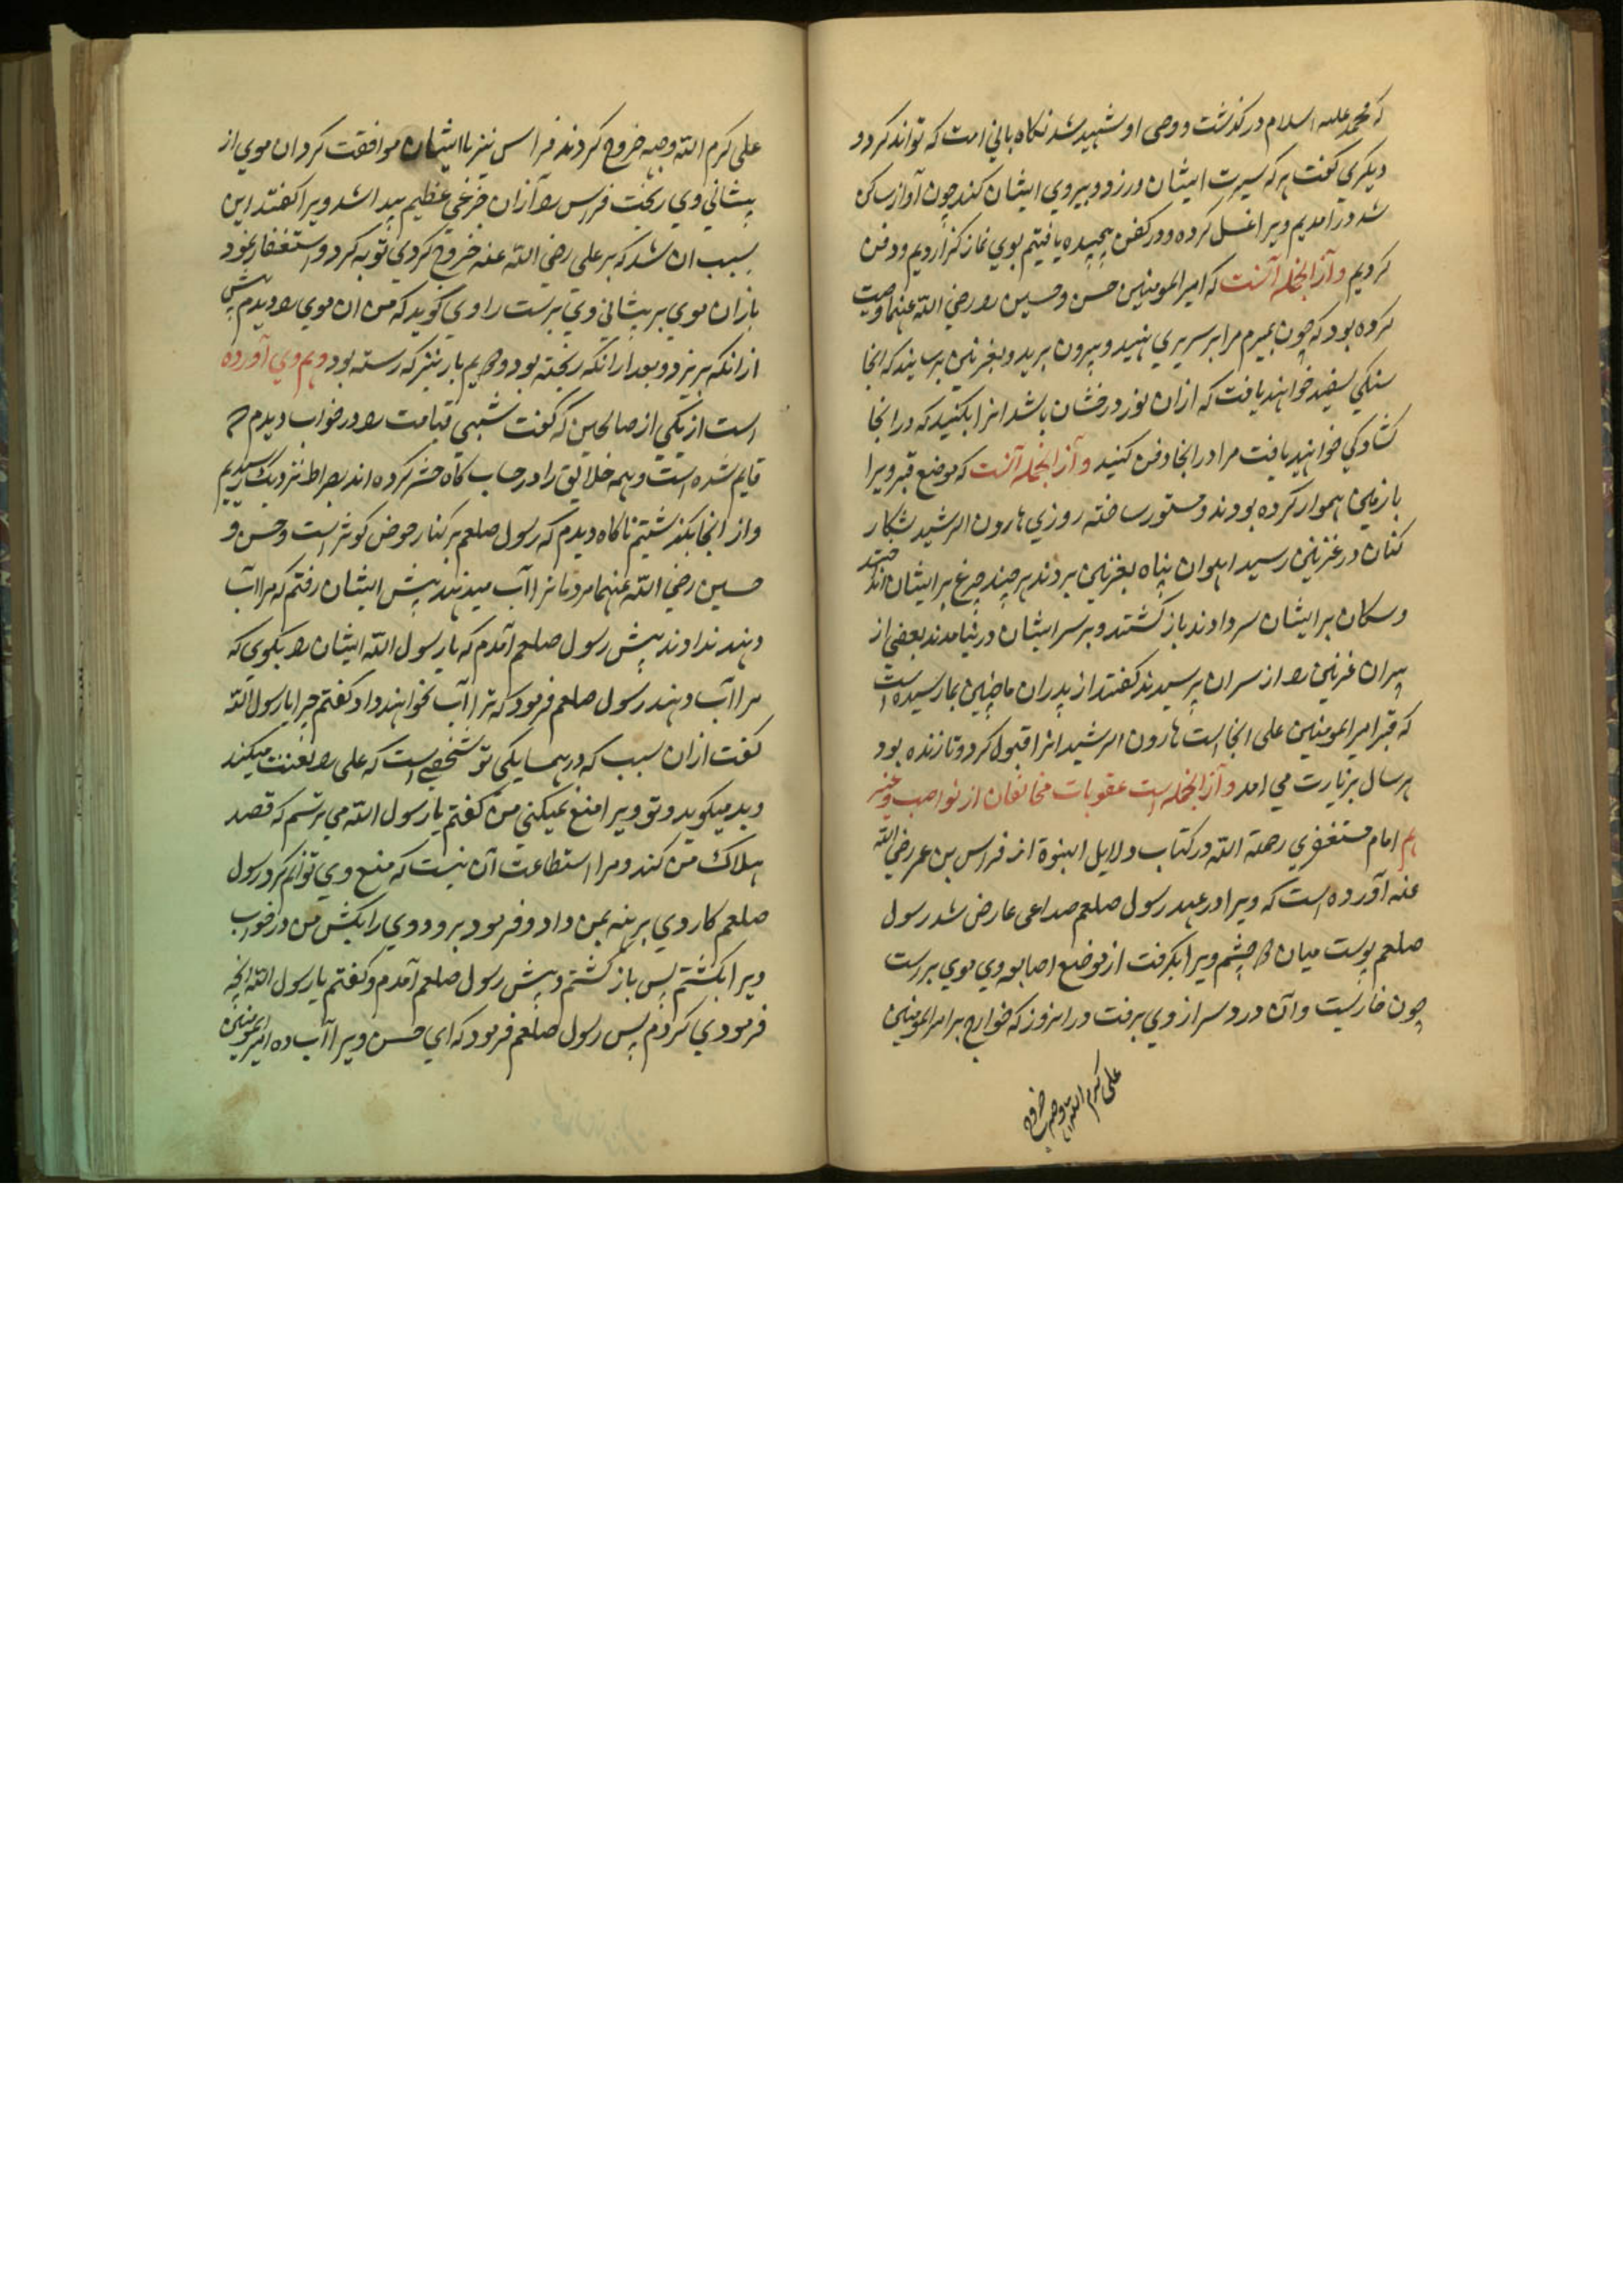 که محمد علیه السلام درکذشت و وصی او شهید شد نکاه بانی امت که تواند کرد و
دیکری کفت هر که سیرت ایشان ورزد و پیروی ایشان کند چون آواز ساکن
شد درآمدیم ویرا غسل کرده و در کفن پیچیده یافتیم بوی نماز کزاردیم و دفن
کردیم و آز انجمله آنست که امیر المومنین حسن و حسین را رضی الله عنهما وصیت
کرده بود که چون بمیرم مرا بر سریری نهید و بیرون برید و بغرنین برسانید که انجا
سنکی سفید خواهید یافت که ازان نور درخشان باشد انرا بکنید که در انجا
کشادکی خواهید یافت مرا در انجا دفن کنید و آز انجمله آنست که موضع قبر ویرا
بازمین هموار کرده بودند و مستور ساخته روزی هارون الرشید شکار
کنان در غرنین رسید اهوان پناه بغرنین بردند هر چند چرغ بر ایشان انداختند
و سکان بر ایشان سر دادند باز کشتند و بر سر ایشان در نیامدند بعضی از
پیران غرنین را از سر ان پرسیدند کفتند از پدران ما چنین بما رسیده است
که قبر امیر المومنین علی انجا است هارون الرشید انرا قبول کرد و تا زنده بود
هر سال بزیارت می امد و آز انجمله است عقوبات مخالفان از نواصب و غیره
هم امام مستغفری رحمة الله در کتاب دلایل النبوة از فراس بن عمر رضی الله
عنه آورده است که ویرا در عهد رسول صلعم صداعی عارض شد رسول
صلعم پوست میان دو چشم ویرا بکرفت از موضع اصابع وی موی بررست
چون خارپشت و آن درد سر از وی برفت در انروز که خوارج بر امیر المومنین
علی کرم الله وجهه خروج
علی کرم الله وجهه خروج کردند فراس نیز با ایشان موافقت کرد ان موی از
پیشانی وی ریخت فراس را آزان جزعی عظیم پیدا شد ویرا کفتند این
بسبب ان شد که بر علی رضی الله عنه خروج کردی توبه کرد و استغفار نمود
باز ان موی بر پیشانی وی برست راوی کوید که من ان موی را دیدم پیش
از انکه بریزد و بعد ازانکه ریخته بود و دیدیم بار نیز که رسته بود و هم وی آورده
است از یکی از صالحین که کفت شبی قیامت را در خواب دیدم که
قایم شده است و همه خلایق را در حساب کاه حشر کرده اند بصراط نزدیک رسیدیم
و از انجا بکذشتیم ناکاه دیدم که رسول صلعم بر کنار حوض کوثر است و حسن و
حسین رضی الله عنهما مردمانرا آب میدهند پیش ایشان رفتم که مرا آب
دهند ندادند پیش رسول صلعم آمدم که یا رسول الله ایشان را بکوی که
مرا آب دهند رسول صلعم فرمود که ترا آب نخواهند داد کفتم چرا یا رسول الله
کفت ازان سبب که در همسایکی تو شخصی است که علی را لعنت میکند
و بد میکوید و تو ویرا منع نمیکنی من کفتم یا رسول الله می ترسم که قصد
هلاک من کند و مرا استطاعت آن نیست که منع وی توانم کرد رسول
صلعم کاردی برهنه بمن داد و فرمود برو و وی را بکش من در خواب
ویرا بکشتم پس باز کشتم و پیش رسول صلعم آمدم و کفتم یا رسول الله انچه
فرمودی کردم پس رسول صلعم فرمود که ای حسن ویرا آب ده امیر المومنین